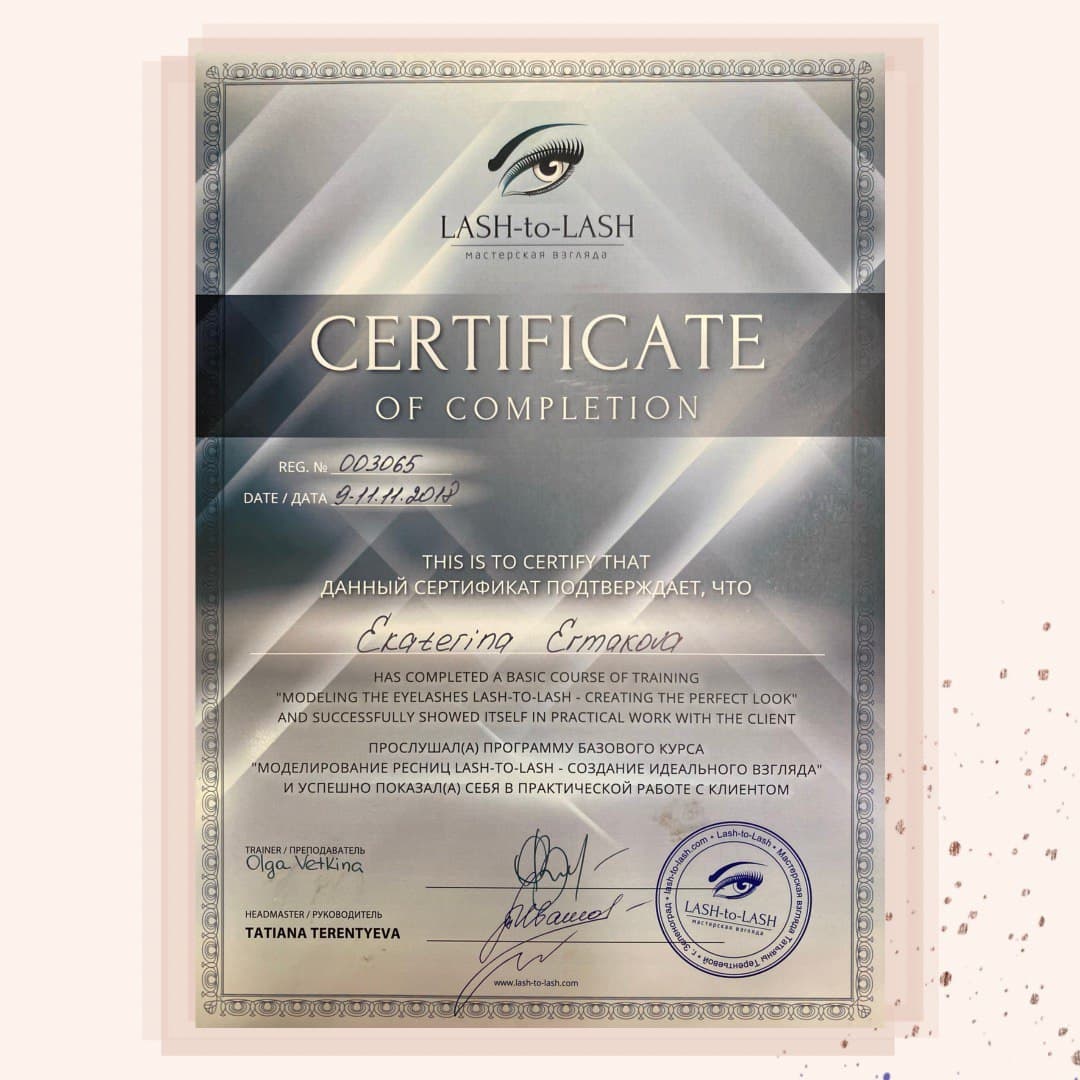 LASH-to-LASH
мастерская взгляда
CERTIFICATE
OF COMPLETION
REG. № 003065
DATE / ДАТА 9-11.11.2018
THIS IS TO CERTIFY THAT
ДАННЫЙ СЕРТИФИКАТ ПОДТВЕРЖДАЕТ, ЧТО
Ekaterina Ermakova
HAS COMPLETED A BASIC COURSE OF TRAINING
"MODELING THE EYELASHES LASH-TO-LASH - CREATING THE PERFECT LOOK"
AND SUCCESSFULLY SHOWED ITSELF IN PRACTICAL WORK WITH THE CLIENT
ПРОСЛУШАЛ(А) ПРОГРАММУ БАЗОВОГО КУРСА
"МОДЕЛИРОВАНИЕ РЕСНИЦ LASH-TO-LASH - СОЗДАНИЕ ИДЕАЛЬНОГО ВЗГЛЯДА"
И УСПЕШНО ПОКАЗАЛ(А) СЕБЯ В ПРАКТИЧЕСКОЙ РАБОТЕ С КЛИЕНТОМ
TRAINER / ПРЕПОДАВАТЕЛЬ
Olga Vetkina
HEADMASTER / РУКОВОДИТЕЛЬ
TATIANA TERENTYEVA
www.lash-to-lash.com
• Lash-to-Lash • Мастерская взгляда Татьяны Терентьевой • г. Зеленоград • lash-to-lash.com
LASH-to-LASH
мастерская взгляда